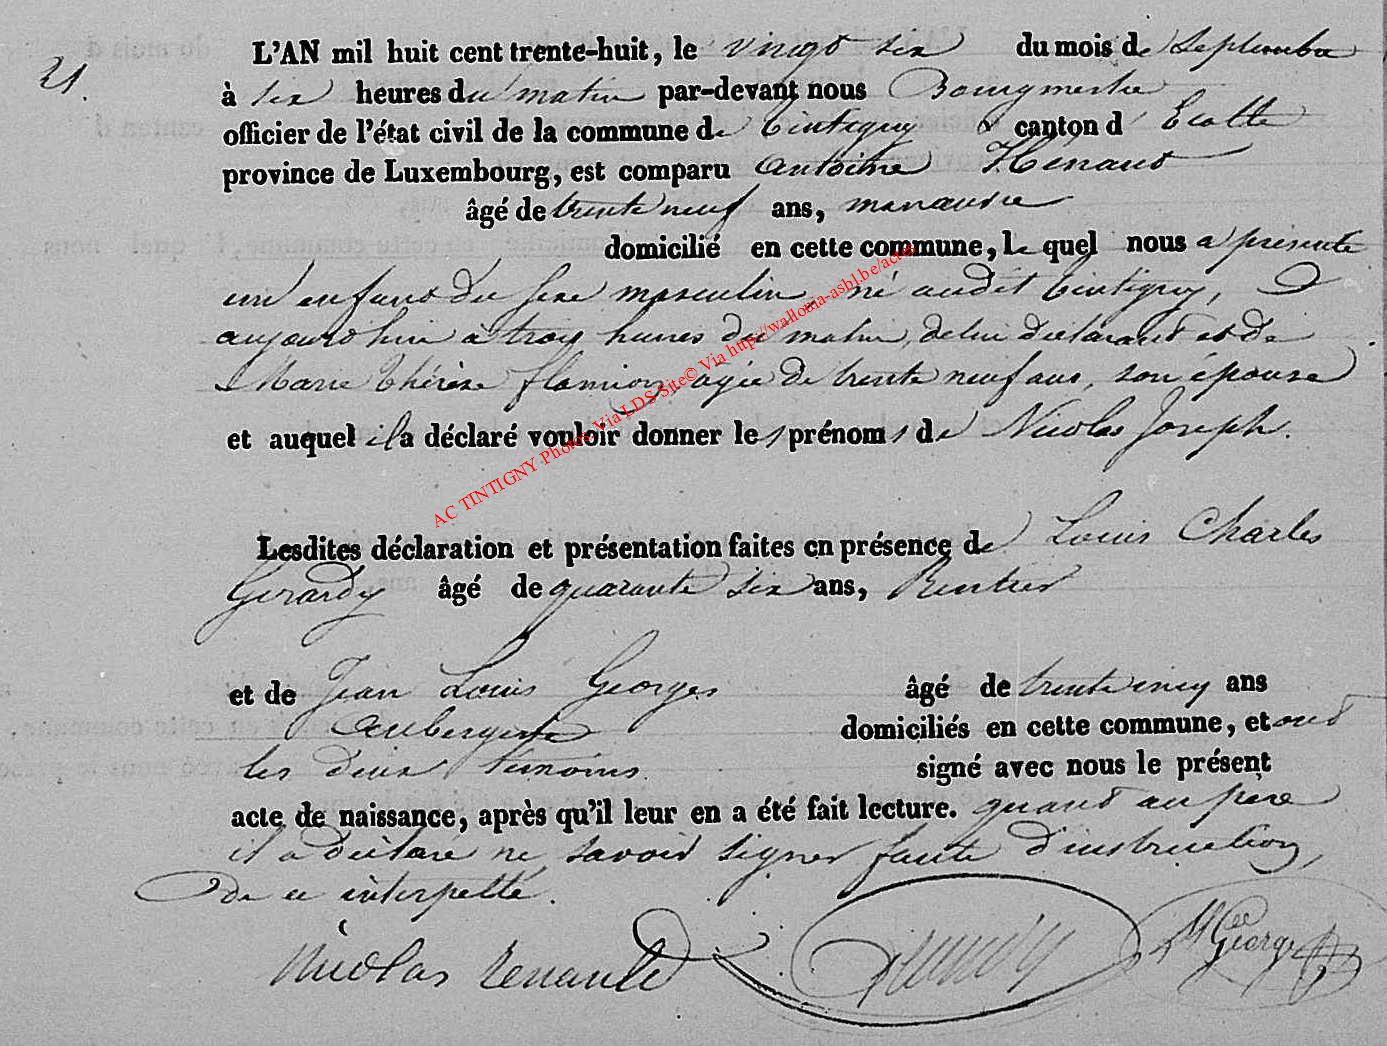 21.
L'AN mil huit cent trente-huit, le vingt six du mois de septembre
à six heures du matin par-devant nous Bourgmestre
officier de l'état civil de la commune de Tintigny canton d' Etalle
province de Luxembourg, est comparu antoine Henaut
âgé de trente neuf ans, manœuvre
domicilié en cette commune, le quel nous a présenté
un enfant du sexe masculin, né audit tintigny,
aujourd'hui à trois heures du matin, de lui déclarant et de
Marie Thérèse flamion, agée de trente neuf ans, son épouse
et auquel il a déclaré vouloir donner les prénoms de Nicolas Joseph.
Lesdites déclaration et présentation faites en présence de Louis Charles
Gerardy âgé de quarante six ans, Rentier
et de Jean Louis Georges âgé de trente cinq ans
aubergiste domiciliés en cette commune, et ont
les deux temoins signé avec nous le présent
acte de naissance, après qu'il leur en a été fait lecture. quant au père
il a déclaré ne savoir signer faute d'instruction,
de ce interpellé.
Nicolas Renauld Georges
AC TINTIGNY Photos Via LDS Site© Via http://wallonia-asbl.be/actes